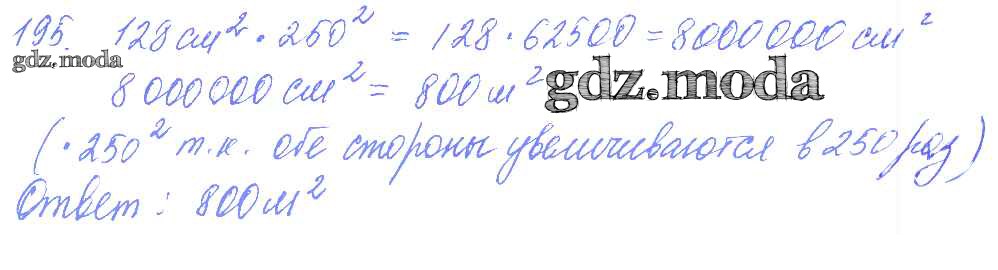 195. 128 см² · 250² = 128 · 62500 = 8000000 см²
gdz.moda
8 000000 см² = 800 м² gdz.moda
( · 250² т.к. обе стороны увеличиваются в 250 раз)
Ответ: 800 м²